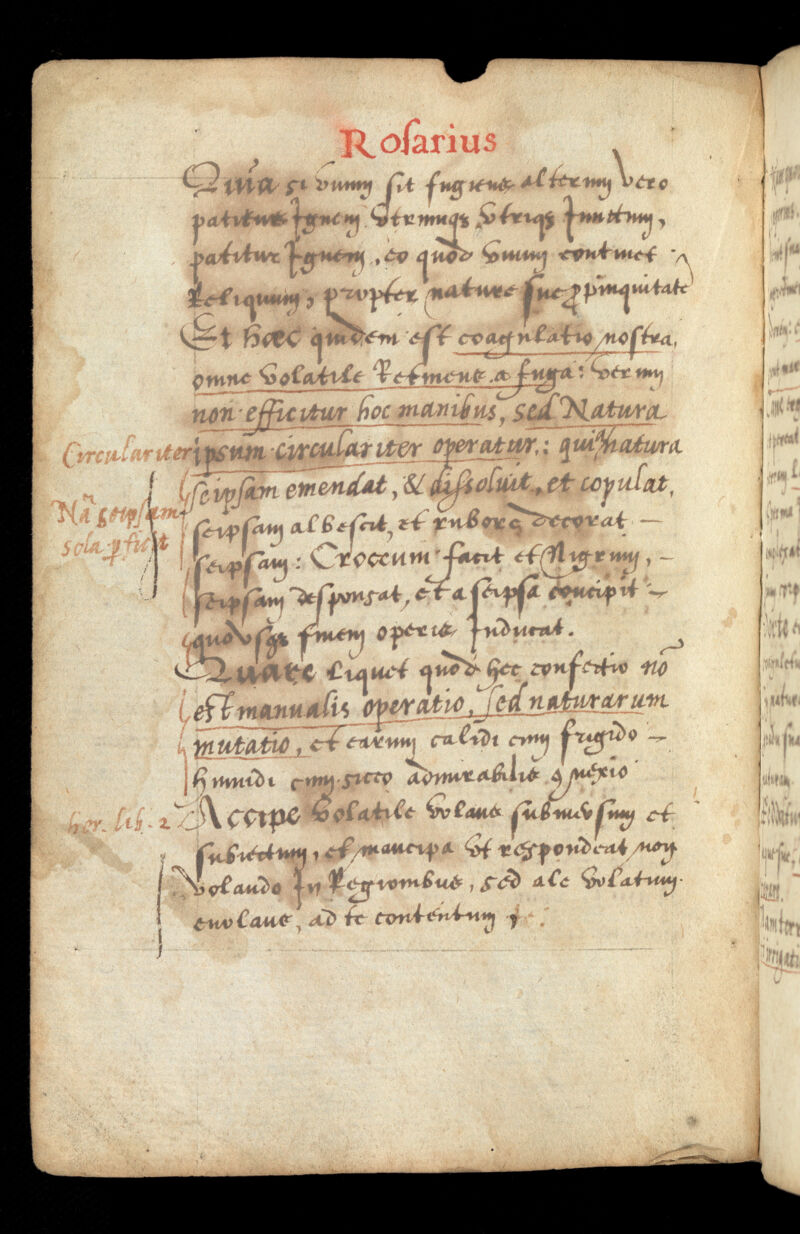 Rosarius
Quia si vnum sit fugiens alterum vero
patiens Ignem vtrumqȝ vtriqȝ Iunctum,
patitur Ignem, eo quod vnum continet
Reliquum, propter nature sue ꝓpinquitatē
Et hoec quidem est coagulatio nostra,
omne volatile Retinens a fuga: verum
non efficitur hoc manibus, sed Natura
Circulariter ipsum circulariter operatur: quia natura
seipsam emendat, & dissoluit, et copulat,
Nā seipsam
seipsam albescit, et rubore decorat –
sola ꝑficit
seipsam: Croceum facit et Nigrum, –
seipsam desponsat, et a seipsa concipit –
quovsqȝ finem operis Inducat.
Quare liquet quod hec confectio nō
est manualis operatio, sed naturarum
mutatio, et earum calidi cum frigido –
humidi cum sicco admirabilis ꝯnexio
hor. lib. 2 Accipe volatile volans submersum et
subiectum, et mancipa vt respondeat non
volando In Regionibus, sed ale volatum
euolans, ad te contentum